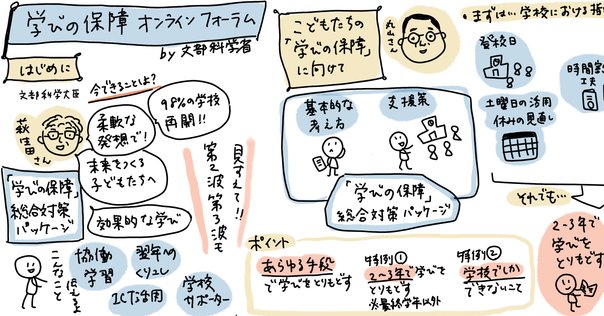 学びの保障 オンラインフォーラム
by 文部科学省
はじめに
文部科学大臣
萩生田さん
今できることは?
柔軟な
発想で!
98%の学校
再開!!
未来をつくる
子どもたちへ
効果的な学び
「学びの保障」
総合対策
パッケージ
見すえて!!
第2波第3波も
協働
学習
翌年への
くりこし
ICT活用
学校
サポーター
こんなこと
こどもたちの
「学びの保障」
に向けて
丸山さん
基本的な
考え方
支援策
「学びの保障」
総合対策パッケージ
ポイント
あらゆる手段
で学びをとりもどす
特例①
2〜3年で学びを
とりもどす
※最終学年以外
特例②
学校でしか
できないこと
・まずは…学校における指
登校日
時間割
工夫
土曜日の活用
休みの見直し
それでも…
2〜3年で
学びを
とりもどす